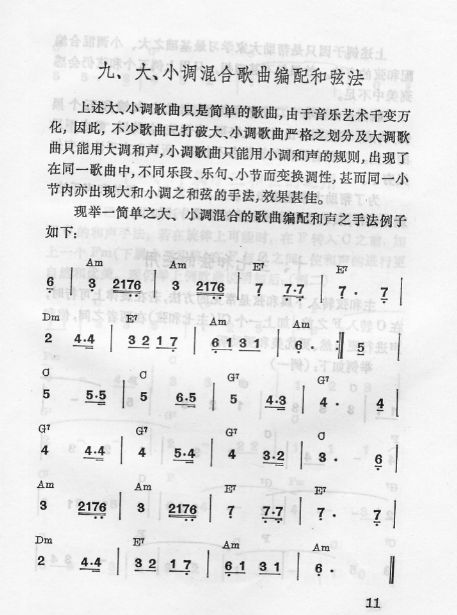 九、大、小调混合歌曲编配和弦法
上述大、小调歌曲只是简单的歌曲,由于音乐艺术千变万
化,因此,不少歌曲已打破大、小调歌曲严格之划分及大调歌
曲只能用大调和声,小调歌曲只能用小调和声的规则,出现了
在同一歌曲中,不同乐段、乐句、小节而变换调性,甚而同一小
节内亦出现大和小调之和弦的手法,效果甚佳。
现举一简单之大、小调混合的歌曲编配和声之手法例子
如下:
Am Am E7 E7
6 | 3 2176 | 3 2176 | 7 7·7 | 7 · 7 |
Dm E7 Am Am
2 4·4 | 32 17 | 61 31 | 6 · :‖ 5
C C G7 G7
5 5·5 | 5 6·5 | 5 4·3 | 4 · 4 |
G7 G7 G7 C
4 4·4 | 4 5·4 | 4 3·2 | 3 · 6 |
Am Am E7 E7
3 2176 | 3 2176 | 7 7·7 | 7 · 7 |
Dm E7 Am Am
2 4·4 | 32 17 | 61 31 | 6 · ‖
11